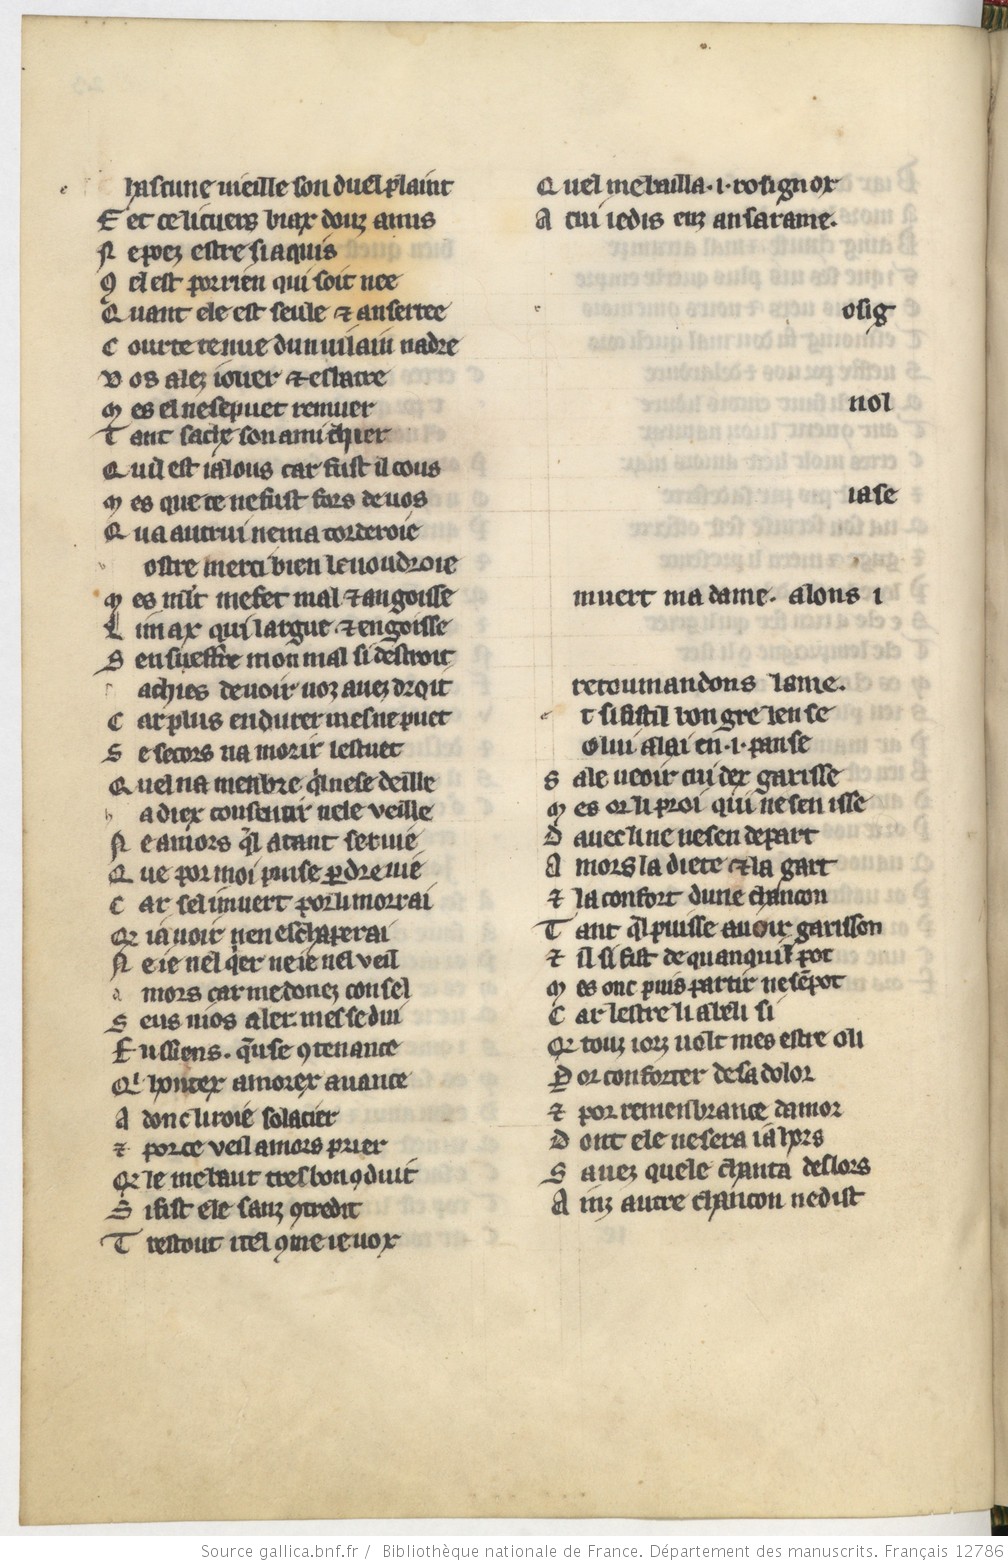 hascune vieille son duel plaint
E et ce li cuers biax douz amis
N e poez estre si aquis
Q el est por rien qui soit nee
Q uant ele est seule ⁊ anserree
C ourte tenue dun uilain nadre
V os alez iouer ⁊ esbatre
M es el ne se puet remuer
T ant sache son ami chier
Q uil est ialous car fust il cous
M es que ce ne fust fors de vos
Q ua autrui ne ma corderoie
ostre merci bien le uoudroie
M es mlt me fet mal ⁊ angoisse
L i max qui largue ⁊ engoisse
S en sueffre mon mal si destroit
achies de uoir uoz auez droit
C ar plus endurer mes ne puet
S e secors na morir lestuet
Q uel na menbre qͥl ne se deille
a diex consentir nele veille
N e amors qͥl a tant seruie
Q ue por moi puise ꝑdre uie
C ar sel i muert por li morrai
Or ia uoir nen eschaperai
N e ie nel qͥer ne ie nel veil
mors car me donez consel
S ens nios aler mes se dui
F ussiens. qͥ use ꝯtenance
Qͥ honter amorex auance
A donc liroie solacier
⁊ por ce veil amors prier
Or le me laut tres bon ꝯduit
S i fist ele sanz ꝯtredit
T restout itel ꝯme ie vox
Q uel me bailla .i. rosignox
A cui iedis enz ansarame.
osig
nol
ia se
muert ma dame. alons i
recoumandons lame.
t si fist il bon gre len se
o lui a lai en .i. panse
S ale ueoir cui dex garisse
M es or li proi qui ne sen isse
D auec lui ne ne sen depart
A mors la diete ⁊ la gart
⁊ la confort dune chancon
T ant qͥl puisse auoir garison
⁊ il si fist de quanquil pot
M es onc puis partir ne sen pot
C ar lestre li abeli si
Or touz iorz uolt mes estre oli
P or conforter de sa dolor
⁊ por remenbrance damor
D ont ele ne sera ia hors
S auez quele chanta deslors
A inz autre chancon ne dist
Source gallica.bnf.fr / Bibliothèque nationale de France. Département des manuscrits. Français 12786